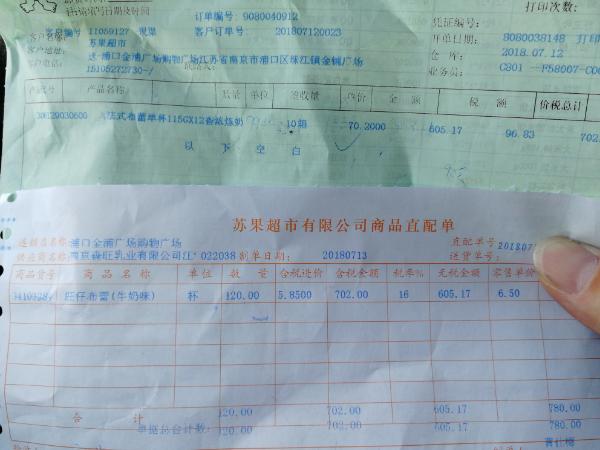 打印次数:
订单编号: 9080040912
凭证编号:
客户编号 11059127 现渠
客户订单号: 201807120023
开单日期: 8080038148 打印
客户名称: 苏果超市
仓 库: 2018.07.12
客户地址: 送-浦口金浦广场购物广场江苏省南京市浦口区珠江镇金铜广场
业务员: C801
客户电话: 15105272730-/
产品名称 数量 单位 签收量 单价 金 额 税 额 价税总计
10箱 70.2000 605.17 96.83 702.
以 下 空 白
苏果超市有限公司商品直配单
浦口金浦广场购物广场
直配单号
供应商名称 南京森旺乳业有限公司江' 022038 制单日期: 20180713
送货单号:
商品货号 商 品 名 称 单 位 数 量 含税进价 含税金额 税率% 无税金额 零售单价
旺仔布蕾(牛奶味) 杯 120.00 5.8500 702.00 16 605.17 6.50
合 计 120.00 702.00 605.17 780.00
单据总合计数: 120.00 702.00 605.17 780.00